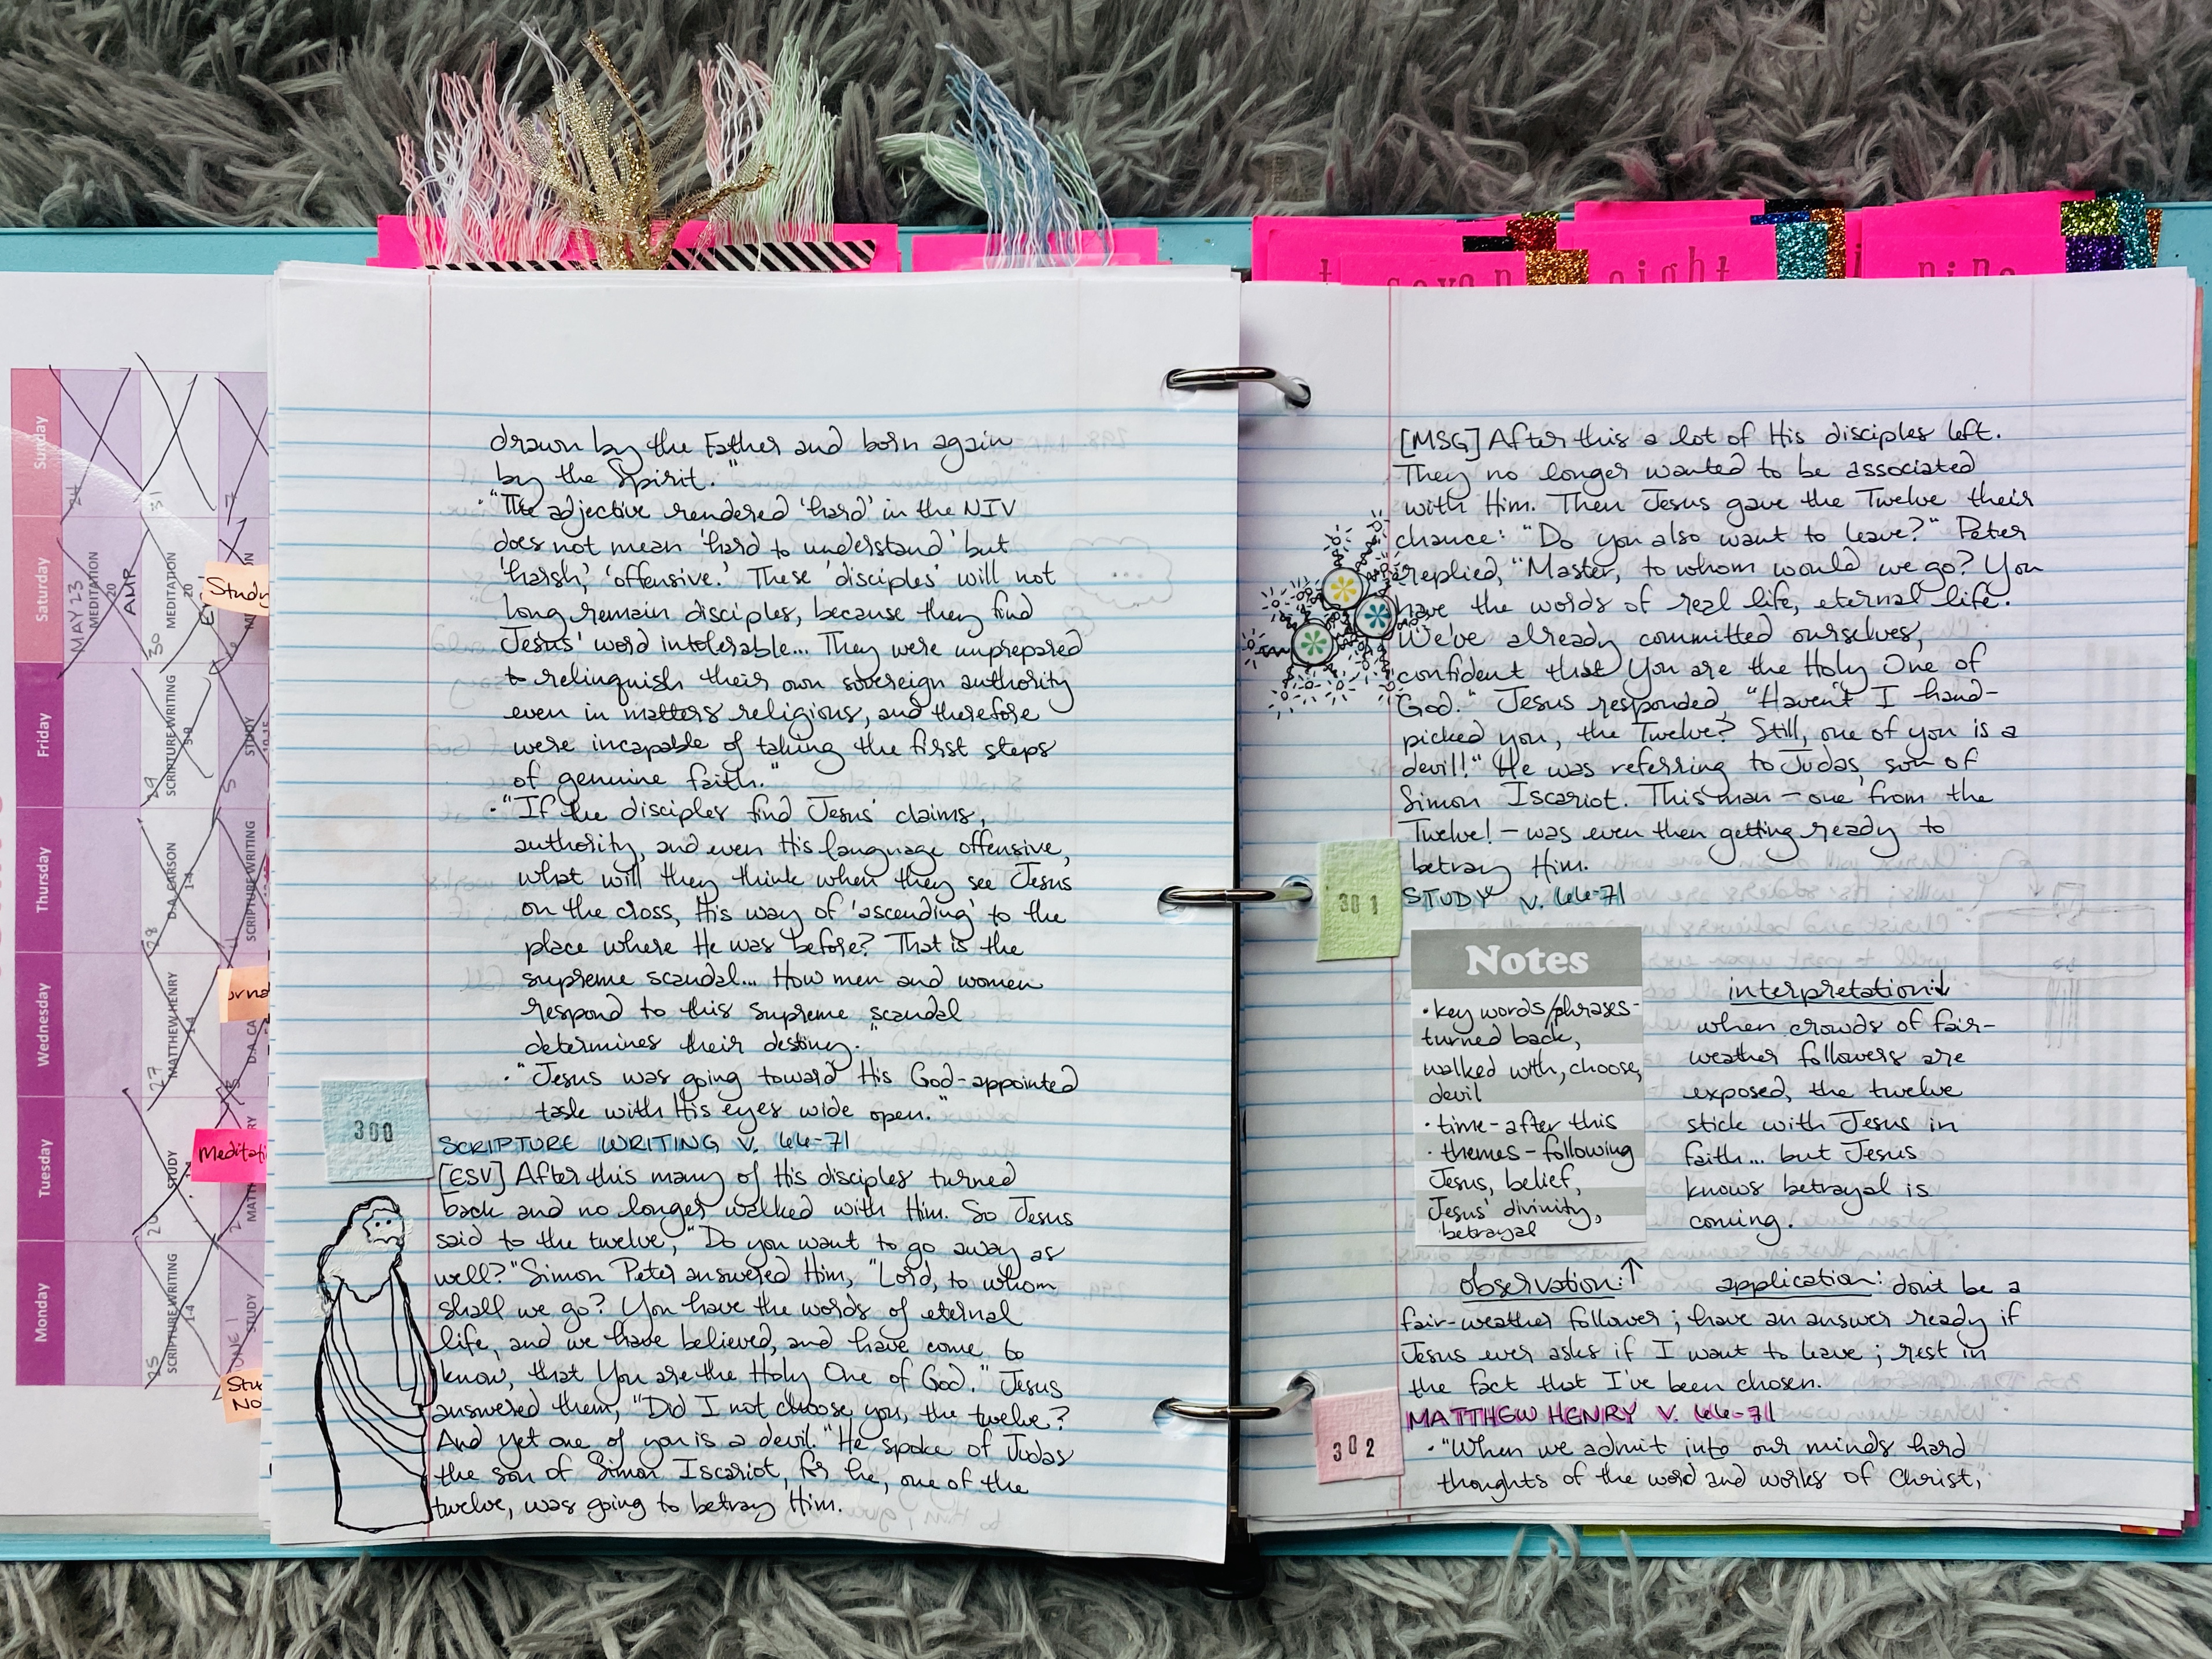 seven
eight
nine
Sunday
Saturday
Friday
Thursday
Wednesday
Tuesday
Monday
24
31
7
MAY 23
MEDITATION
20
AMP
30
MEDITATION
20
29
SCRIPTURE WRITING
5-9
5
STUDY
10-15
28
D.A. CARSON
1-4
SCRIPTURE WRITING
27
MATTHEW HENRY
1-4
D.A. CA
26
STUDY
1-4
2
MATT
25
SCRIPTURE WRITING
1-4
JUNE 1
STUDY
Study
Meditati
Stu
No
drawn by the Father and born again
by the Spirit."
• "The adjective rendered 'hard' in the NIV
does not mean 'hard to understand' but
'harsh,' 'offensive.' These 'disciples' will not
long remain disciples, because they find
Jesus' word intolerable... They were unprepared
to relinquish their own sovereign authority
even in matters religious, and therefore
were incapable of taking the first steps
of genuine faith."
• "If the disciples find Jesus' claims,
authority, and even His language offensive,
what will they think when they see Jesus
on the cross, His way of 'ascending' to the
place where He was before? That is the
supreme scandal... How men and women
respond to this supreme scandal
determines their destiny."
• "Jesus was going toward His God-appointed
task with His eyes wide open."
300
SCRIPTURE WRITING V. 66-71
[ESV] After this many of His disciples turned
back and no longer walked with Him. So Jesus
said to the twelve, "Do you want to go away as
well?" Simon Peter answered Him, "Lord, to whom
shall we go? You have the words of eternal
life, and we have believed, and have come to
know, that You are the Holy One of God." Jesus
answered them, "Did I not choose you, the twelve?
And yet one of you is a devil." He spoke of Judas
the son of Simon Iscariot, for he, one of the
twelve, was going to betray Him.
[MSG] After this a lot of His disciples left.
They no longer wanted to be associated
with Him. Then Jesus gave the Twelve their
chance: "Do you also want to leave?" Peter
replied, "Master, to whom would we go? You
have the words of real life, eternal life.
We've already committed ourselves,
confident that You are the Holy One of
God." Jesus responded, "Haven't I hand-
picked you, the Twelve? Still, one of you is a
devil!" He was referring to Judas, son of
Simon Iscariot. This man – one from the
Twelve! – was even then getting ready to
betray Him.
301
STUDY V. 66-71
Notes
• key words/phrases-
turned back,
walked with, choose,
devil
• time - after this
• themes - following
Jesus, belief,
Jesus' divinity,
betrayal
observation: ↑
interpretation: ↓
when crowds of fair-
weather followers are
exposed, the twelve
stick with Jesus in
faith... but Jesus
knows betrayal is
coming.
application: don't be a
fair-weather follower; have an answer ready if
Jesus ever asks if I want to leave; rest in
the fact that I've been chosen.
302
MATTHEW HENRY V. 66-71
• "When we admit into our minds hard
thoughts of the word and works of Christ,